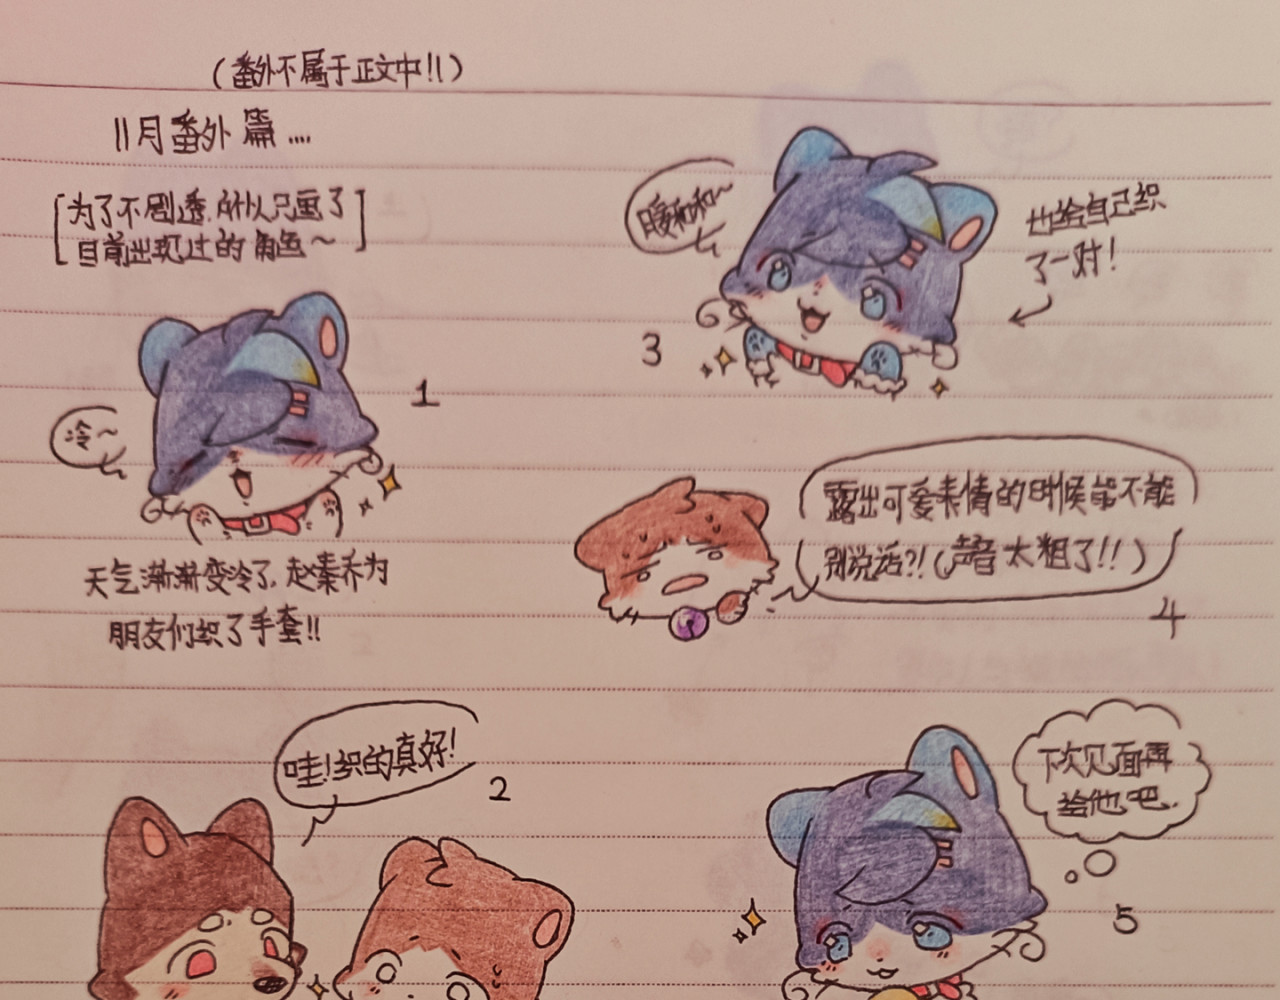 (番外不属于正文中!!)
11月番外篇....
[为了不剧透,所以只画了
目前出现过的角色~]
冷~
1
天气渐渐变冷了,赵秦乔为
朋友们织了手套!!
哇!织的真好!
2
暖和和~
也给自己织
了一对!
3
露出可爱表情的时候能不能
别说话?!(声音太粗了!!)
4
下次见面再
给他吧..
5